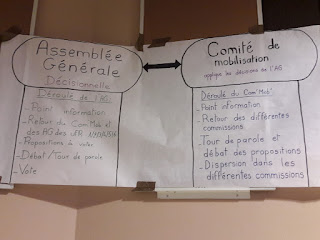 Assemblée
Générale
Décisionnelle
Déroulé de l'AG:
- Point information
- Retour du Com'Mob' et
des AG des UFR
- Propositions à voter
- Débat/Tour de parole
- Vote
Comité de
mobilisation
applique les décisions de l'AG
Déroulé du Com'Mob'
- Point information
- Retour des différentes
commissions
- Tour de parole et
débat des propositions
- Dispersion dans les
différentes commissions